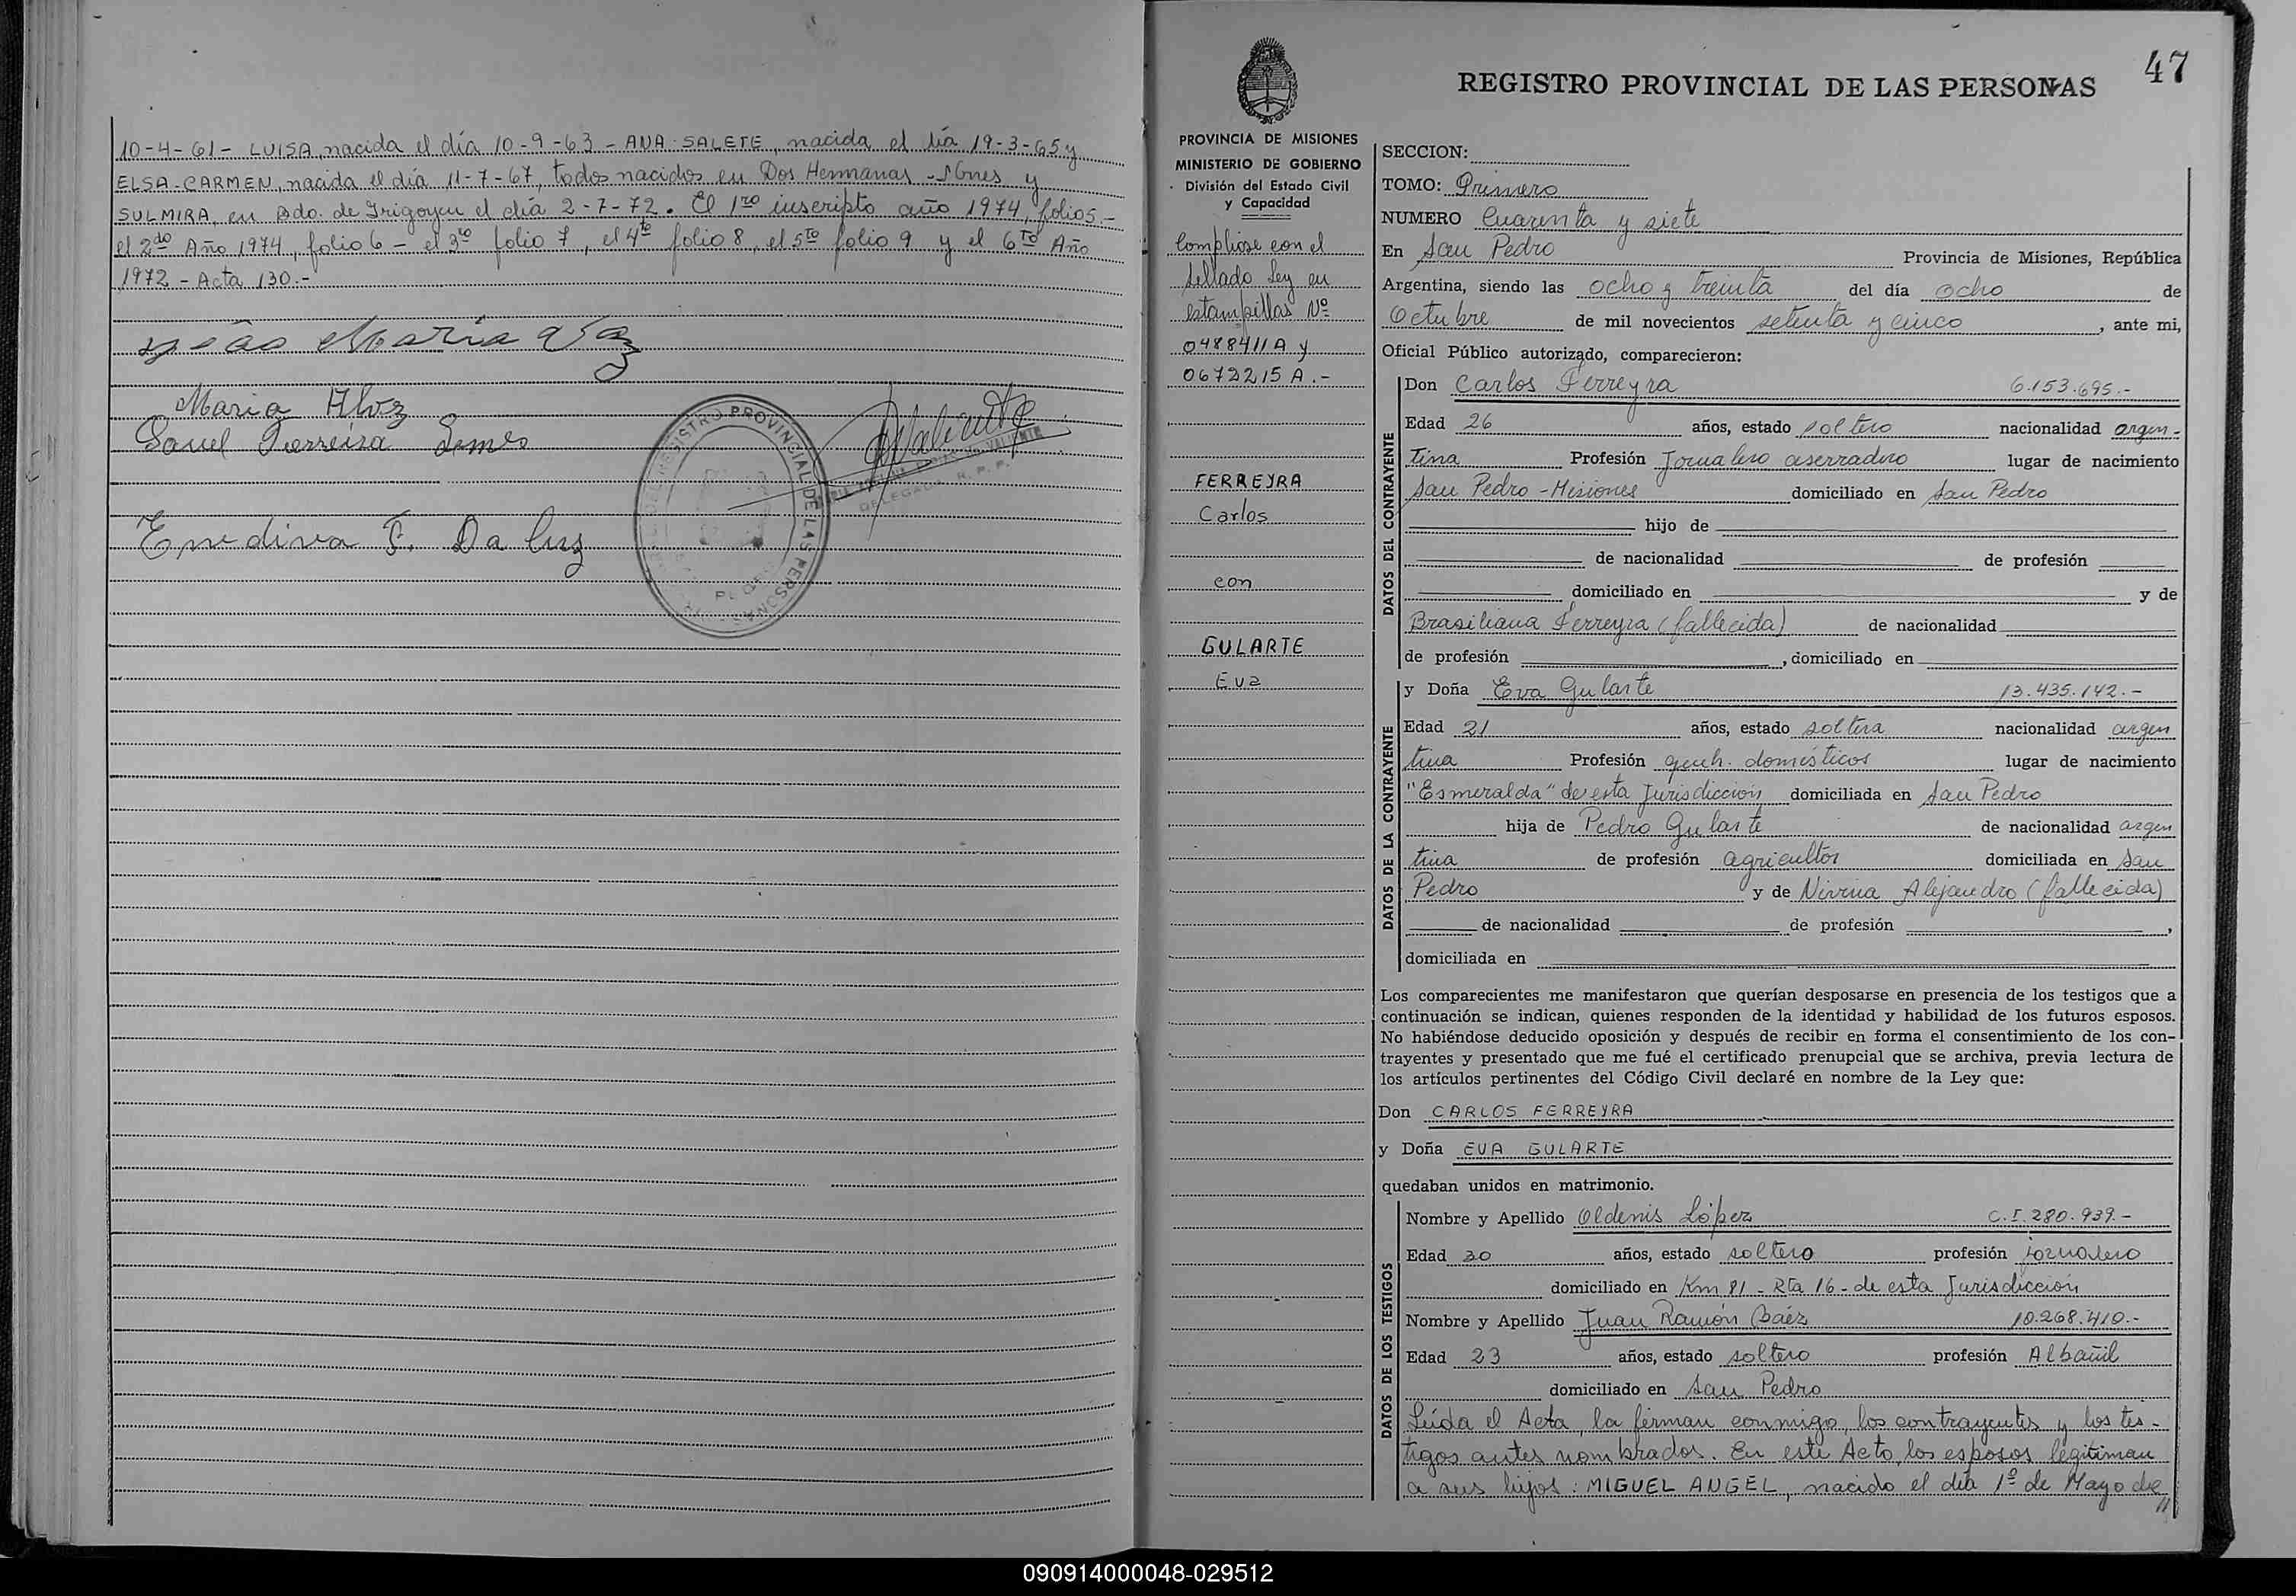 10-4-61- LUISA, nacida el día 10-9-63 - ANA SALETE, nacida el día 19-3-65 y
ELSA CARMEN, nacida el día 11-7-67, todos nacidos en Dos Hermanas - y
SULMIRA, en Bdo. de Irigoyen el día 2-7-72. El 1ro inscripto año 1974, folio 5.-
el 2do Año 1974, folio 6 - el 3ro folio 7, el 4to folio 8, el 5to folio 9 y el 6to Año
1972 - Acta 130.-
João Maria Vaz
Maria Alvz
Ferreira
F. Da luz
REGISTRO PROVINCIAL DE LAS PERSONAS
47
REGISTRO PROVINCIAL DE LAS PERSONAS
PROVINCIA DE MISIONES
MINISTERIO DE GOBIERNO
División del Estado Civil
y Capacidad
Complióse con el
sellado Ley en
estampillas Nº
0488411A y
0672215 A.-
FERREYRA
Carlos
con
GULARTE
Eva
SECCION:
TOMO: Primero
NUMERO Cuarenta y siete
En San Pedro Provincia de Misiones, República
Argentina, siendo las ocho y treinta del día ocho de
Octubre de mil novecientos setenta y cinco, ante mi,
Oficial Público autorizado, comparecieron:
DATOS DEL CONTRAYENTE
Don Carlos Ferreyra 6.153.695.-
Edad 26 años, estado soltero nacionalidad argen-
tina Profesión Jornalero aserradero lugar de nacimiento
San Pedro - Misiones domiciliado en San Pedro
hijo de
de nacionalidad de profesión
domiciliado en y de
Brasiliana Ferreyra (fallecida) de nacionalidad
de profesión , domiciliado en
DATOS DE LA CONTRAYENTE
y Doña Eva Gularte 13.435.142.-
Edad 21 años, estado soltera nacionalidad argen
tina Profesión queh. domésticos lugar de nacimiento
"Esmeralda" de esta Jurisdicción domiciliada en San Pedro
hija de Pedro Gularte de nacionalidad argen
tina de profesión agricultor domiciliada en San
Pedro y de Alejandro (fallecida)
de nacionalidad de profesión ,
domiciliada en
Los comparecientes me manifestaron que querían desposarse en presencia de los testigos que a
continuación se indican, quienes responden de la identidad y habilidad de los futuros esposos.
No habiéndose deducido oposición y después de recibir en forma el consentimiento de los con-
trayentes y presentado que me fué el certificado prenupcial que se archiva, previa lectura de
los artículos pertinentes del Código Civil declaré en nombre de la Ley que:
Don CARLOS FERREYRA
y Doña EVA GULARTE
quedaban unidos en matrimonio.
DATOS DE LOS TESTIGOS
Nombre y Apellido Oldenis López C.I. 280.939.-
Edad 30 años, estado soltero profesión jornalero
domiciliado en Km 81 - Rta 16 - de esta Jurisdicción
Nombre y Apellido Juan Ramón Báez 10.268.410.-
Edad 23 años, estado soltero profesión Albañil
domiciliado en San Pedro
Leída el Acta, la firman conmigo, los contrayentes y los tes-
tigos antes nombrados. En este Acto, los esposos legitiman
a sus hijos: MIGUEL ANGEL, nacido el día 1º de Mayo de
//
090914000048-029512